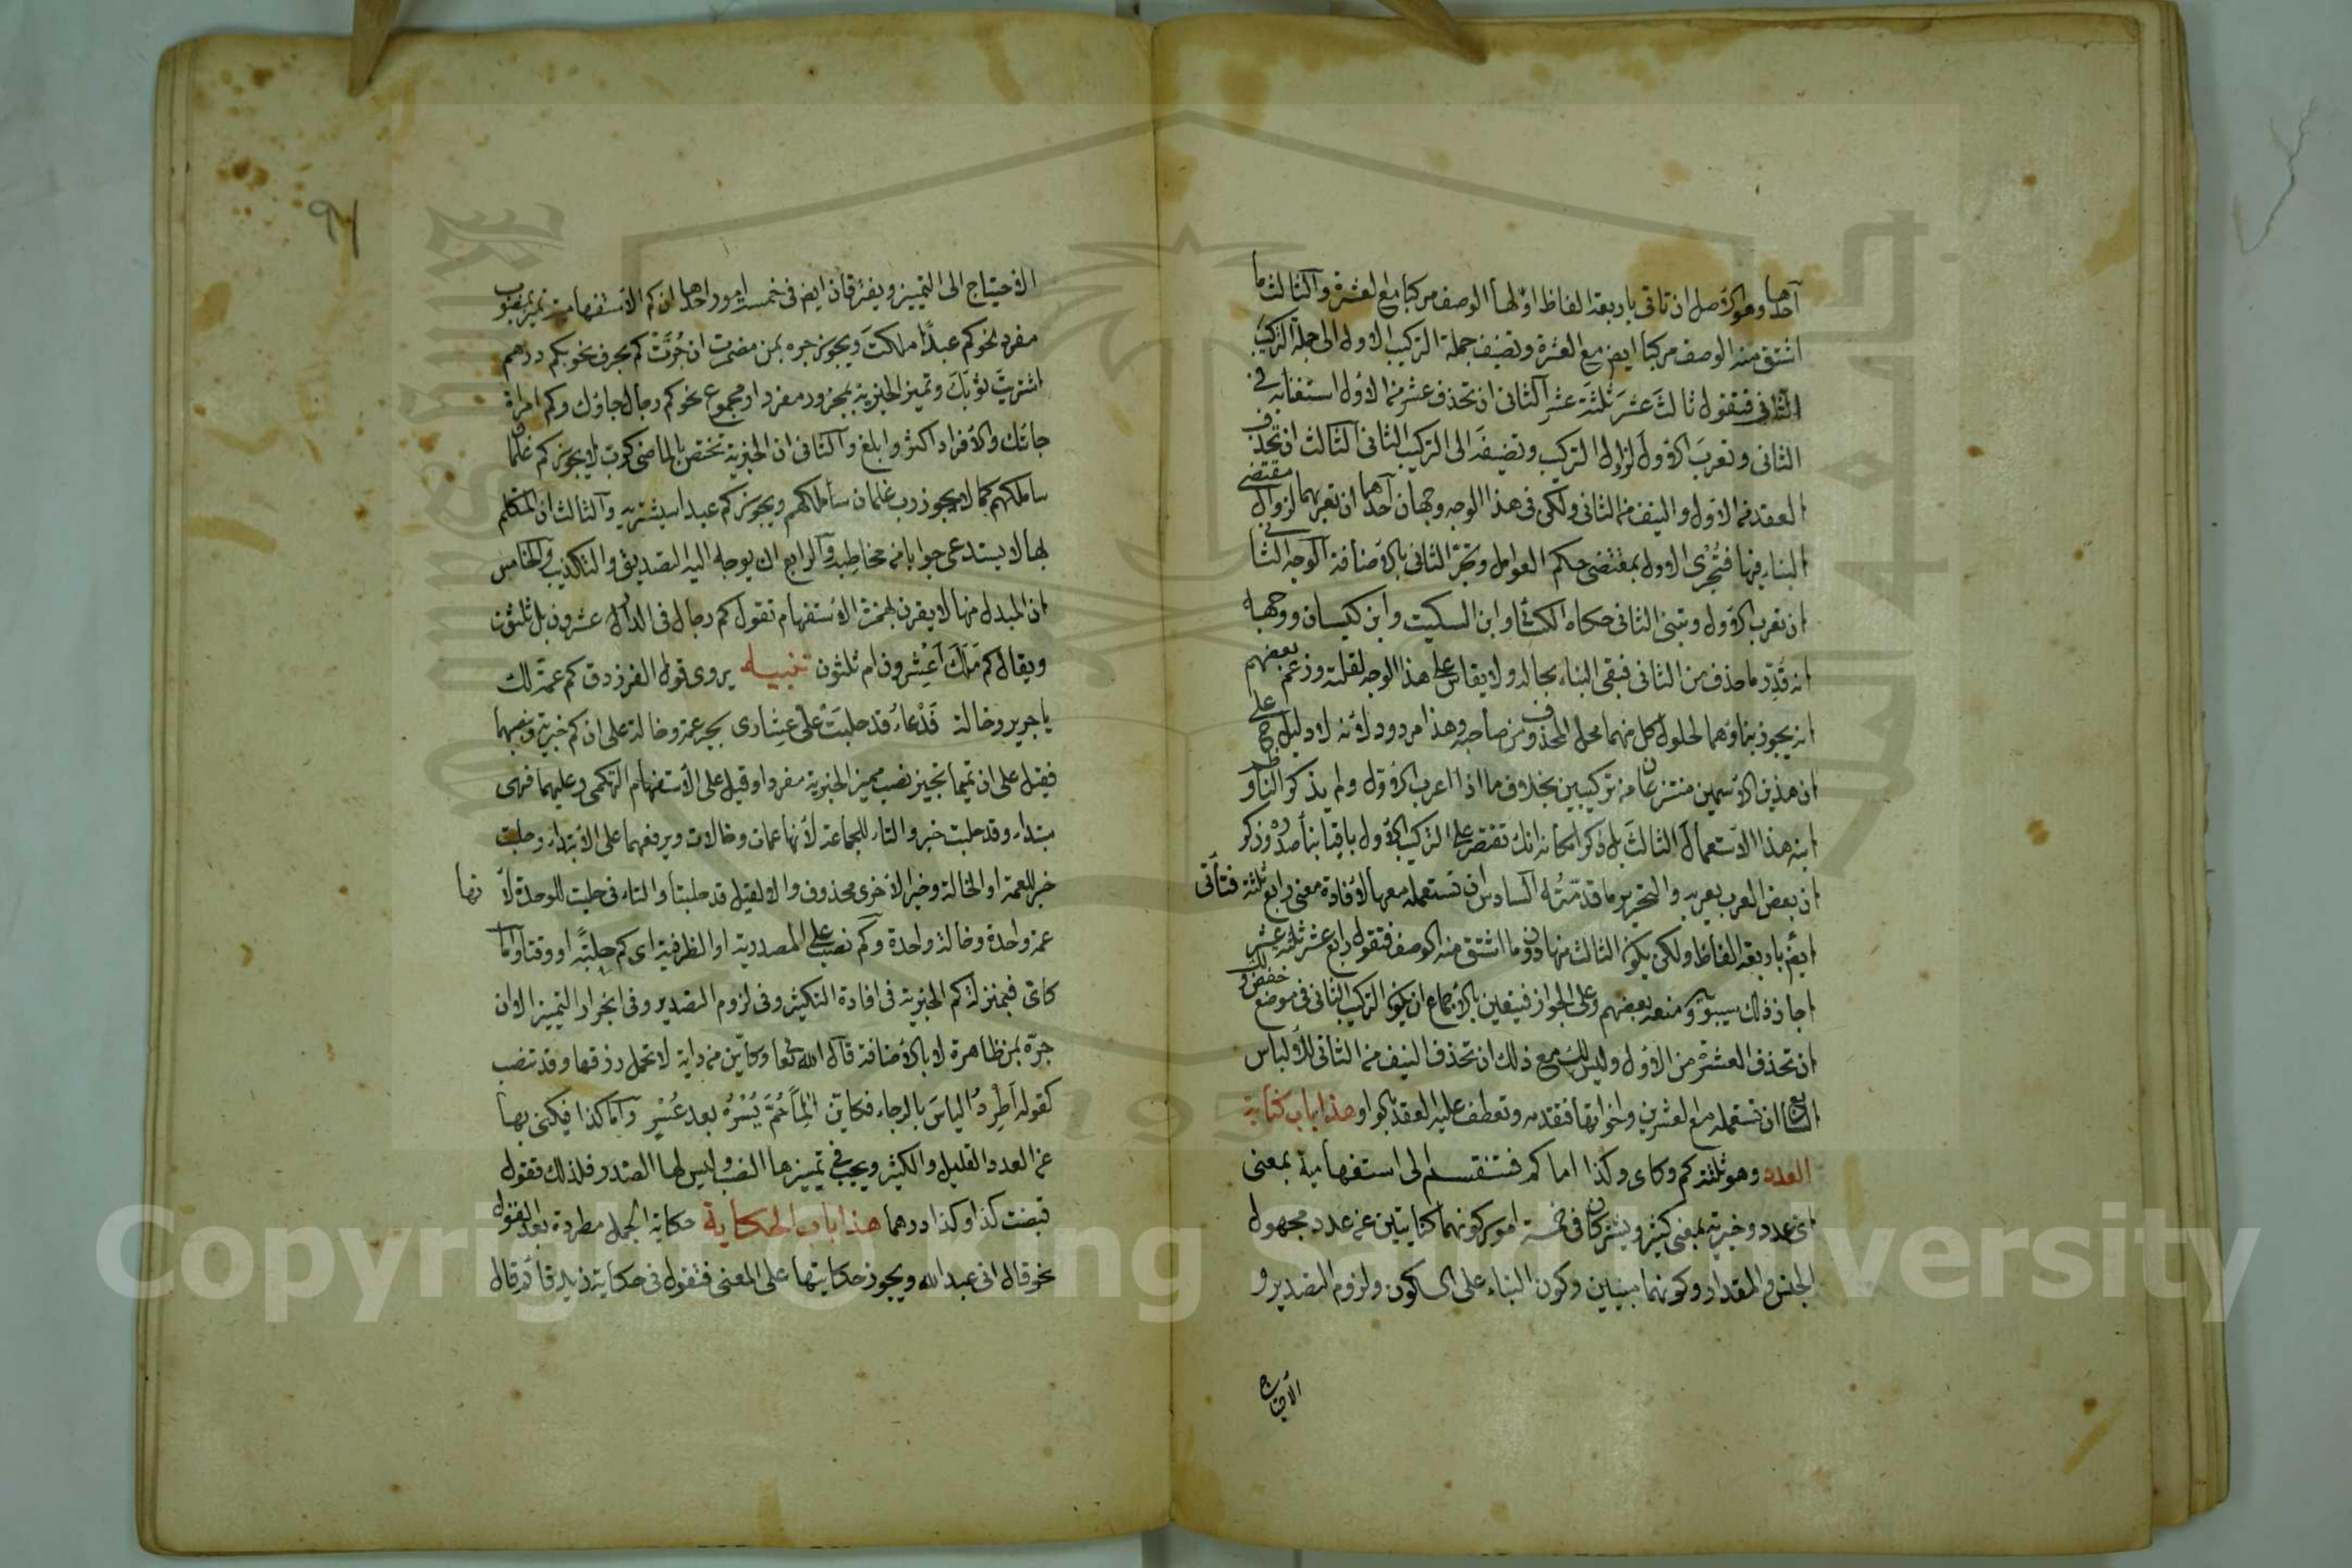 احدها وهو الاصل ان تاتى باربعة الفاظ اولها الوصف مركبا مع العشرة والثالث ما
اشتق منه الوصف مركبا ايضا مع العشرة وتضيف جملة التركيب الاول الى جملة التركيب
الثانى فتقول ثالثَ عشَرَ ثلثةَ عشر الثانى ان تحذف عشر من الاول استغنا به فى
الثانى وتعرب الاول لزوال التركيب وتضيفه الى التركيب الثانى الثالث ان تحذف
العقد من الاول والنيف من الثانى ولك فى هذا الوجه وجهان احدهما ان تعربهما لزوال مقتضى
البناء فيهما فتُجرى الاول بمقتضى حكم العوامل وتجرّ الثانى بالاضافة الوجه الثانى
ان تعرب الاول وتبنى الثانى حكاه الكسائى وابن السكيت وابن كيسان ووجهه
انه قدّر ما حذف من الثانى فبقى البناء بحاله ولا يقاس على هذا الوجه لقلته وزعم بعضهم
انه يجوز بناؤهما لحلول كل منهما محل المحذوف من صاحبه وهذا مردود لانه لا دليل ح على
ان هذين الاسمين منتزعان من تركيبين بخلاف ما اذا اعرب الاول ولم يذكر الناظم و
ابنه هذا الاستعمال الثالثَ بل ذكرا مكانه انك تقتصر على التركيب الاول باقيا بنا صدره وذكر
ان بعض العرب يعربه والتحرير ما قدّمتُه السادس ان تستعمله معها لافادة معنى رابع ثلثة فتأتى
ايضا باربعة الفاظ ولكن يكون الثالث منها دون ما اشتق منه الوصف فتقول رابع عشر ثلثة عشر
اجاز ذلك سيبويه ومنعه بعضهم وعلى الجواز فيتعين بالاجماع ان يكون التركيب الثانى فى موضع خفض ولك
ان تحذف العشرة من الاول وليس لك مع ذلك ان تحذف النيف من الثانى للالباس
السابع ان تستعمله مع العشرين واخواتها فتقدمه وتعطف عليه العقد بالواو هذا باب كناية
العدد وهو ثلثة كم وكاى وكذا اما كم فتنقسم الى استفهامية بمعنى
اى عدد وخبرية بمعنى كثير ويشتركان فى خمسة امور كونهما كنايتين عن عدد مجهول
الجنس والمقدار وكونهما مبنيين وكون البناء على السكون ولزوم التصدير و
الاحتياج
٩١
الاحتياج الى التمييز ويفترقان ايضا فى خمسة امور احدها ان كم الاستفهامية تميز بمنصوب
مفرد نحو كم عبدًا ملكتَ ويجوز جره بمن مضمرة ان جُرَّتْ كم بحرف نحو بكم درهم
اشتريتَ ثوبَكَ وتميز الخبرية بمجرور مفرد او مجموع نحو كم رجال جاؤك وكم امراة
جاتك والافراد اكثر وابلغ والثانى ان الخبرية تختص بالماضى كرب لا يجوز كم غلمان
ساملكهم كما لا يجوز رب غلمان سأملكهم ويجوز كم عبدا ستشتريه والثالث ان المتكلم
بها لا يستدعى جوابا من مخاطبه والرابع انه يوجه اليه التصديق والتكذيب والخامس
ان المبدل منها لا يقرن بهمزة الاستفهام تقول كم رجال فى الدار عشرون بل ثلثون
ويقال كم مَالُكَ أَعِشْرون ام ثلثون تنبيه يروى قول الفرزدق كم عمة لك
يا جرير وخالة فَدْعاءُ قد حلبَتْ علىّ عِشارى بجر عمة وخالة على ان كم خبرية وبنصبهما
فقيل على ان تميما تجيز نصب مميز الخبرية مفردا وقيل على الاستفهام التهكمى وعليهما فهى
مبتدا وقد حلبت خبر والتاء للجماعة لأنها عمات وخالات وبرفعهما على الابتداء وحلبت
خبر للعمة او الخالة وخبر الاخرى محذوف والا لقيل قد حلبتا والتاء فى حلبت للوحدة لأنها
عمة واحدة وخالة واحدة وكم نصب على المصدرية او الظرفية اى كم حلبة او وقتا واما
كاى فبمنزلة كم الخبرية فى افادة التكثير وفى لزوم التصدير وفى انجرار التمييز الا ان
جرّه بمن ظاهرة لا بالاضافة قال الله تعا وكايّن من دابة لا تحمل رزقها وقد تنصب
كقوله أطْرِدُ الياسَ بالرجاء فكايّن الِمًا حُمَّ يُسْرُه بعد عُسْرِ وأما كذا فيكنى بها
عن العدد القليل والكثير ويجب فى تمييزها النصب وليس لها الصدر فلذلك تقول
قبضت كذا وكذا درهما هذا باب الحكاية حكاية الجمل مطردة بعد القول
نحو قال انى عبد الله ويجوز حكايتها على المعنى فتقول فى حكاية زيد قائم قال
Copyright © King Saud University
1957